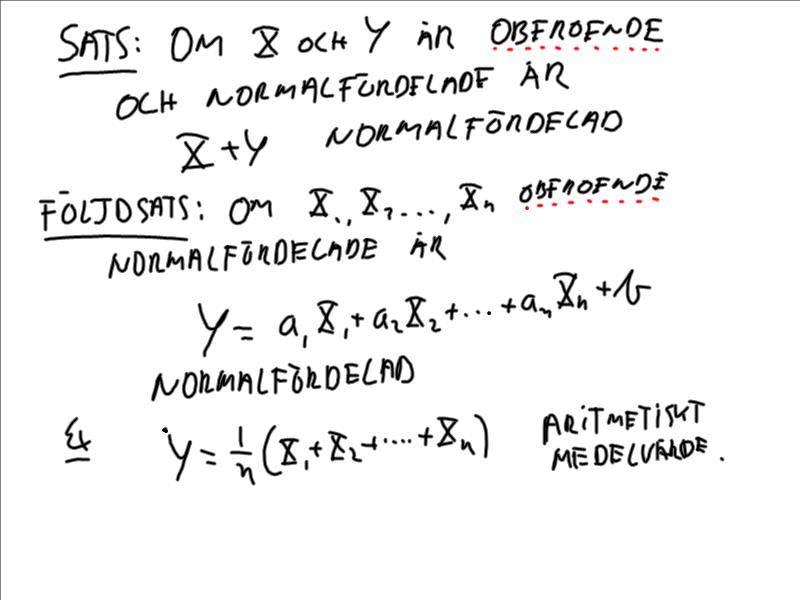 SATS: OM X OCH Y ÄR OBEROENDE
OCH NORMALFÖRDELADE ÄR
X+Y NORMALFÖRDELAD
FÖLJDSATS: OM X₁, X₂ ..., Xₙ OBEROENDE
NORMALFÖRDELADE ÄR
Y = a₁X₁ + a₂X₂ + ... + aₙXₙ + b
NORMALFÖRDELAD
Ex Y = 1/n (X₁ + X₂ + .... + Xₙ) ARITMETISKT
MEDELVÄRDE.